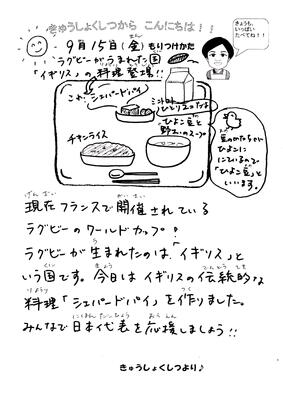 きゅうしょくしつから こんにちは!!
きょうも、
いっぱい
たべてね!!
9月15日(金) もりつけかた
ラグビーがうまれた国
「イギリス」の料理登場!!
これが シェパードパイ
ミニトマト
ひとり2こだよ
ひよこ豆と
野菜のスープ
チキンライス
豆のかたちが
ひよこに
にているので
「ひよこ豆」と
いいます。
げんざい かいさい
現在フランスで開催されている
ラグビーのワールドカップ!
ラグビーが生まれたのは、「イギリス」と
いう国です。今日はイギリスの伝統的な
料理「シェパードパイ」を作りました。
にほんだいひょう おうえん
みんなで日本代表を応援しましょう!!
きゅうしょくしつより♪